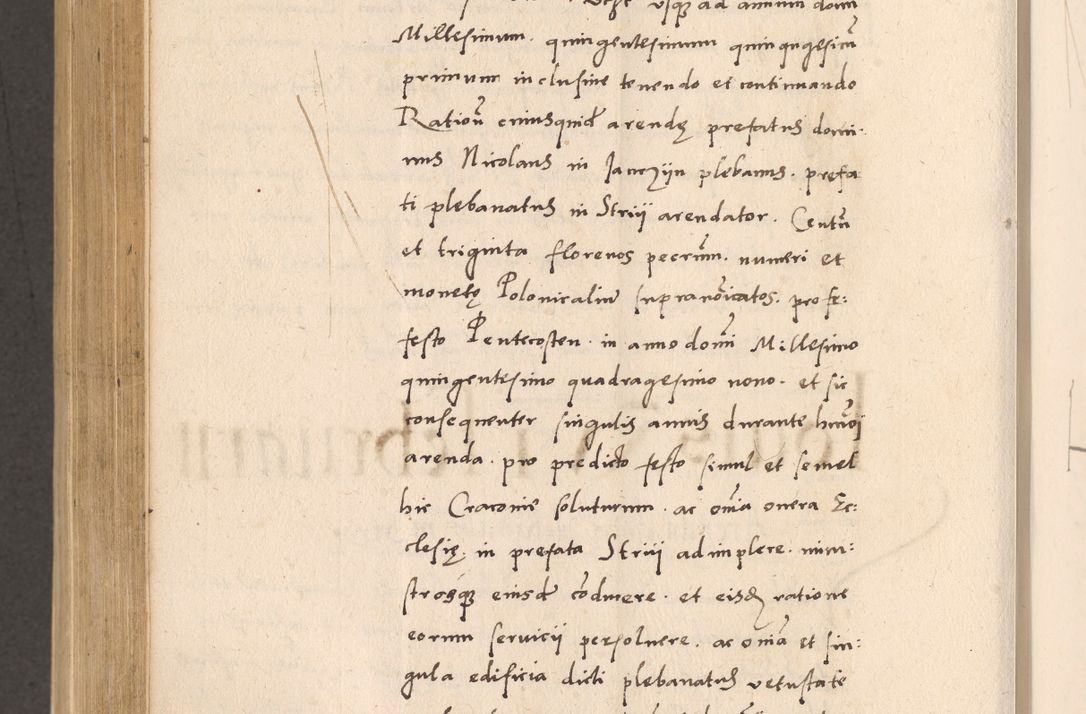 usqz ad annum domi
Millesimum. quingentesimum quinqugesicū
primum inclusive tenendo et continuando
Rationū eiusquid arendę prefatus domi-
nus Nicolaus in Janczijn plebanus. prefa
ti plebanatus in Strij arendator. Centū
et triginta florenos pecīnn. numeri et
monetę Polonicaliū supranōicatos. pro fe:
festo Pentecosten. in anno domī Millesimo
quingentesimo quadragesimo nono. et sic
consequenter singulis annis durante hmōi
arenda. pro predicto festo simul et semel
hic Cracoviē soluturum. ac oīnia onera Ec:
clesię. in prefata Strij adimplere. mini:
strosqz eiusd cōducere. et eisdz ratione
eorum servicij persoluere. ac oīnia et sin:
gula edificia dicti plebanatus vetustate